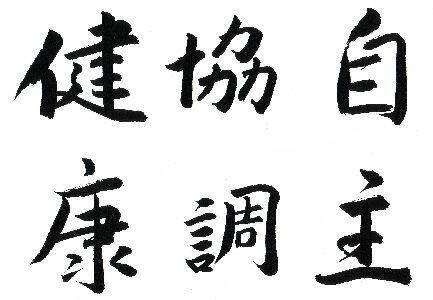 自主
協調
健康